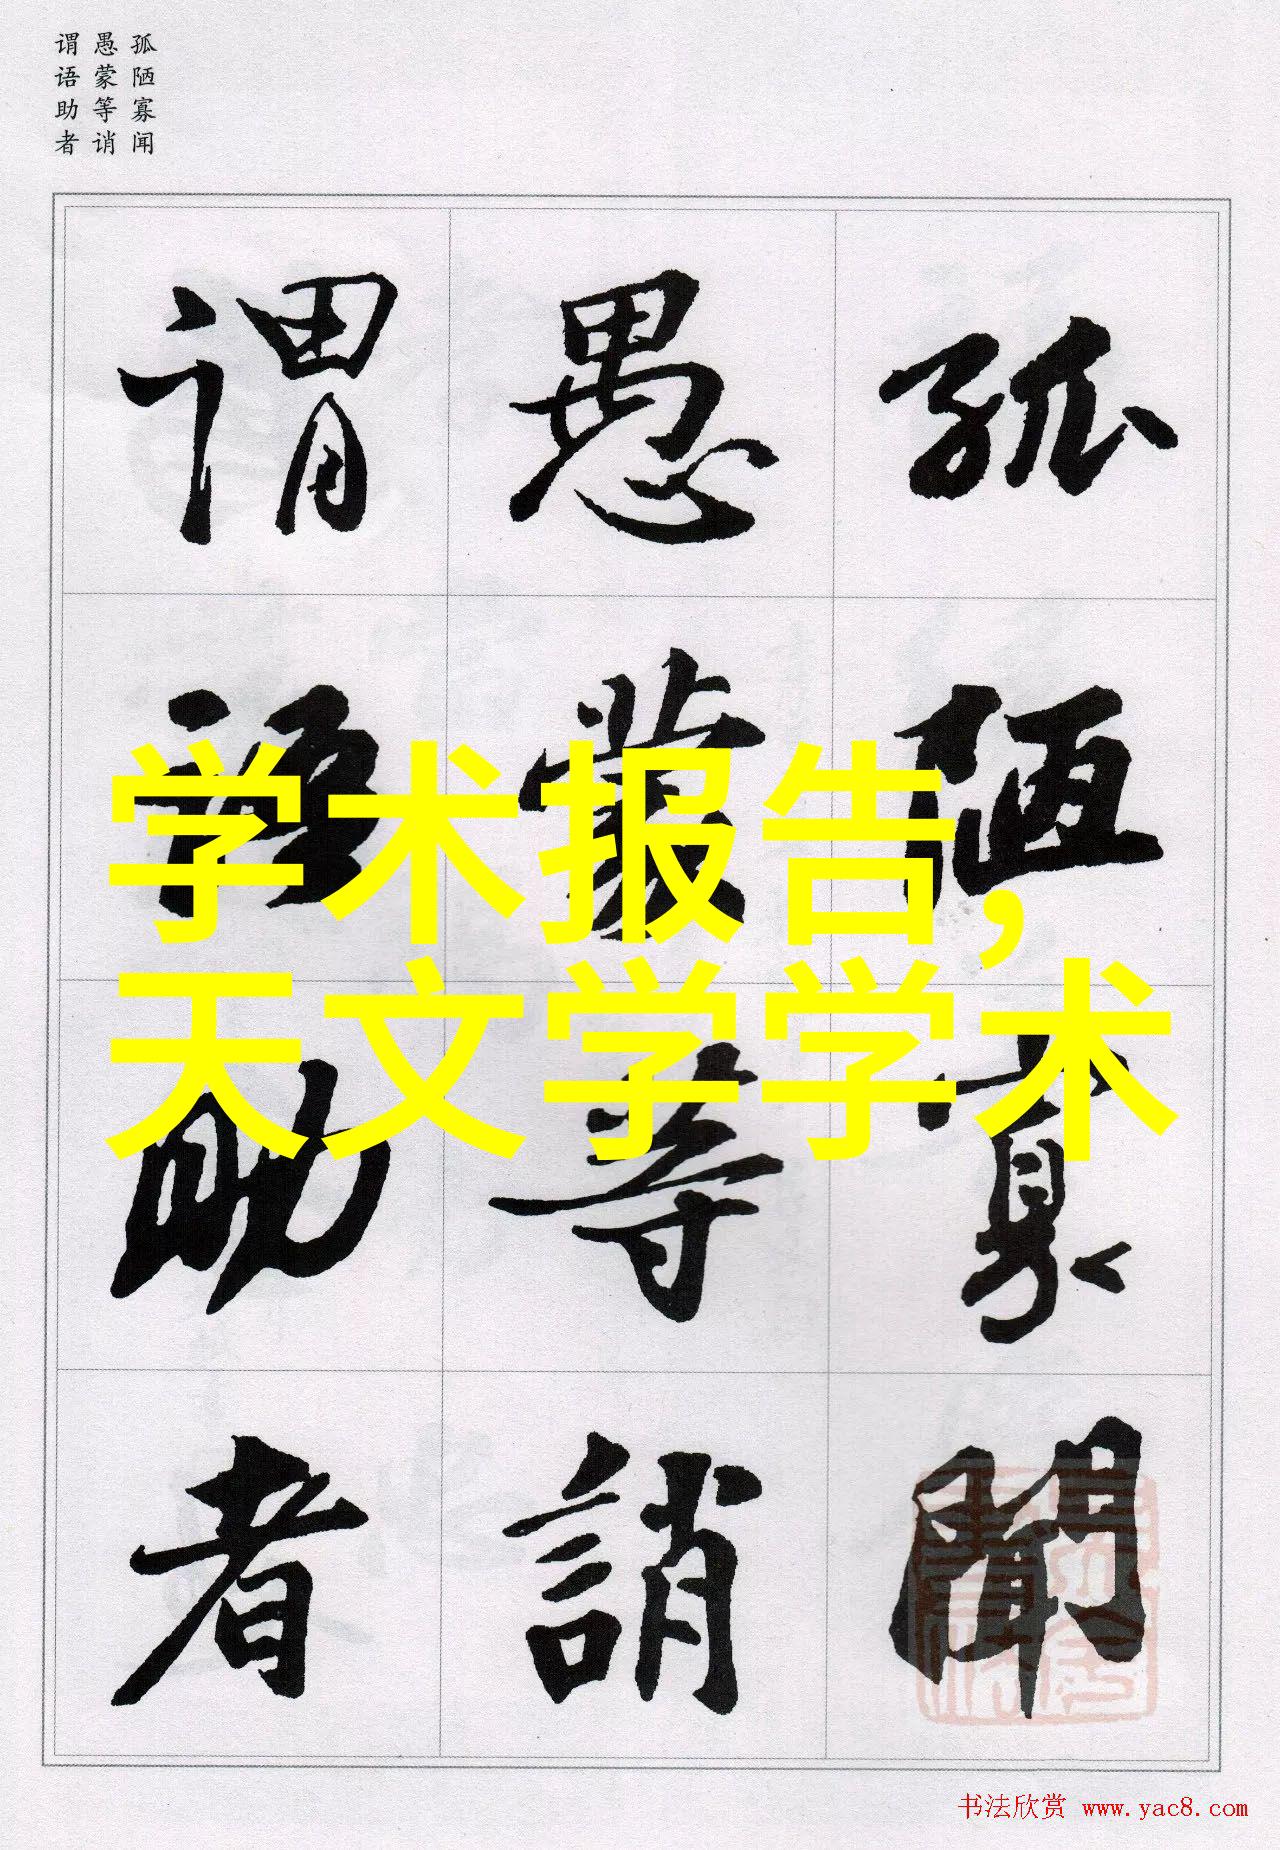 孤陋寡闻
愚蒙等诮
谓语助者
孤陋寡聞
愚蒙等誚
謂語助者
学术报告,
天文学学术
书法欣赏 www.yac8.com